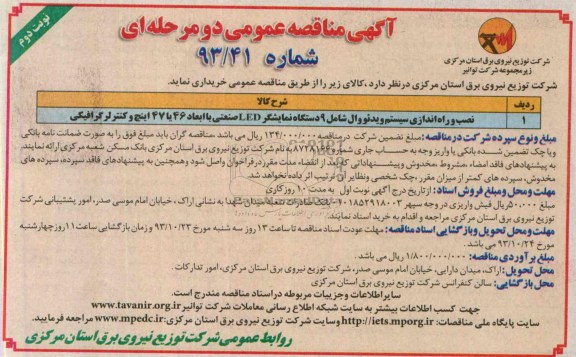 نوبت دوم
آگهی مناقصه عمومی دو مرحله ای
شماره ۹۳/۴۱
شرکت توزیع نیروی برق استان مرکزی
زیرمجموعه شرکت توانیر
شرکت توزیع نیروی برق استان مرکزی درنظر دارد ،کالای زیر را از طریق مناقصه عمومی خریداری نماید.
ردیف شرح کالا
۱ نصب و راه اندازی سیستم ویدئو وال شامل ۹ دستگاه نمایشگر LED صنعتی با ابعاد ۴۶ یا ۴۷ اینچ و کنترلر گرافیکی
مبلغ ونوع سپرده شرکت در مناقصه: مبلغ تضمین شرکت درمناقصه ۱۳۴/۰۰۰/۰۰۰ ریال می باشد .مناقصه گران باید مبلغ فوق را به صورت ضمانت نامه بانکی
ویا چک تضمین شده بانکی یا واریز وجه به حساب جاری شماره به نام شرکت توزیع نیروی برق استان مرکزی بانک مسکن شعبه مرکزی ارائه نمایند.
به پیشنهادهای فاقد امضاء، مشروط ،مخدوش و پیشنهاداتی که بعد از انقضاء مدت مقرر درفراخوان واصل شود وهمچنین به پیشنهادهای فاقد سپرده، سپرده های
مخدوش، سپرده های کمتر از میزان مقرر، چک شخصی ونظایر آن ترتیب اثر داده نخواهد شد.
مهلت ومحل ومبلغ فروش اسناد: ازتاریخ درج آگهی نوبت اول به مدت ۱۰ روزکاری
مبلغ ۵۰۰۰۰ ریال فیش واریزی در وجه سپهر شعبه میدان شهدا به نشانی اراک، خیابان امام موسی صدر، امور پشتیبانی شرکت
توزیع نیروی برق استان مرکزی مراجعه و اقدام به خرید اسناد نمایند.
مهلت ومحل تحویل وبازگشایی اسناد مناقصه: مهلت عودت اسناد مناقصه تا ساعت ۱۳ روز سه شنبه مورخ ۹۳/۱۰/۲۳ و زمان بازگشایی ساعت ۱۱ روز چهارشنبه
مورخ ۹۳/۱۰/۲۴ می باشد.
مبلغ برآوردی مناقصه: ۱/۸۰۰/۰۰۰/۰۰۰ ریال می باشد.
محل تحویل: اراک، میدان دارایی، خیابان امام موسی صدر، شرکت توزیع نیروی برق استان مرکزی، امور تدارکات .
محل بازگشایی: سالن کنفرانس شرکت توزیع نیروی برق استان مرکزی.
سایر اطلاعات و جزییات مربوطه در اسناد مناقصه مندرج است.
جهت کسب اطلاعات بیشتر به سایت شبکه اطلاع رسانی معاملات شرکت توانیر www.tavanir.org.ir
سایت پایگاه ملی مناقصات: http://iets.mporg.ir وسایت شرکت توزیع نیروی برق استان مرکزی: www.mpedc.ir مراجعه فرمایید.
روابط عمومی شرکت توزیع نیروی برق استان مرکزی